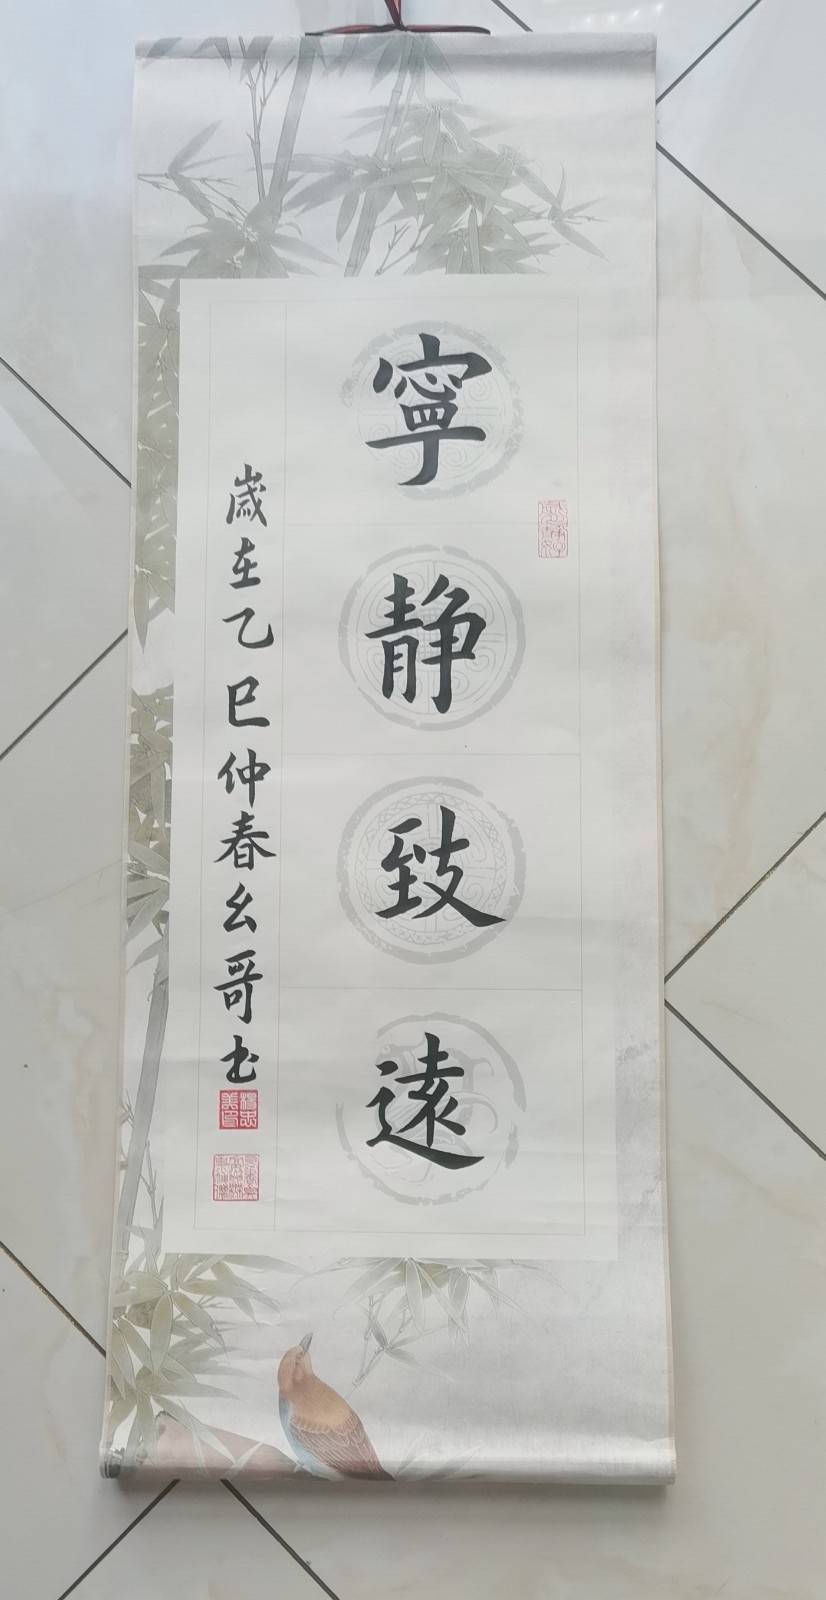 寧静致遠
歲在乙巳仲春幺哥书